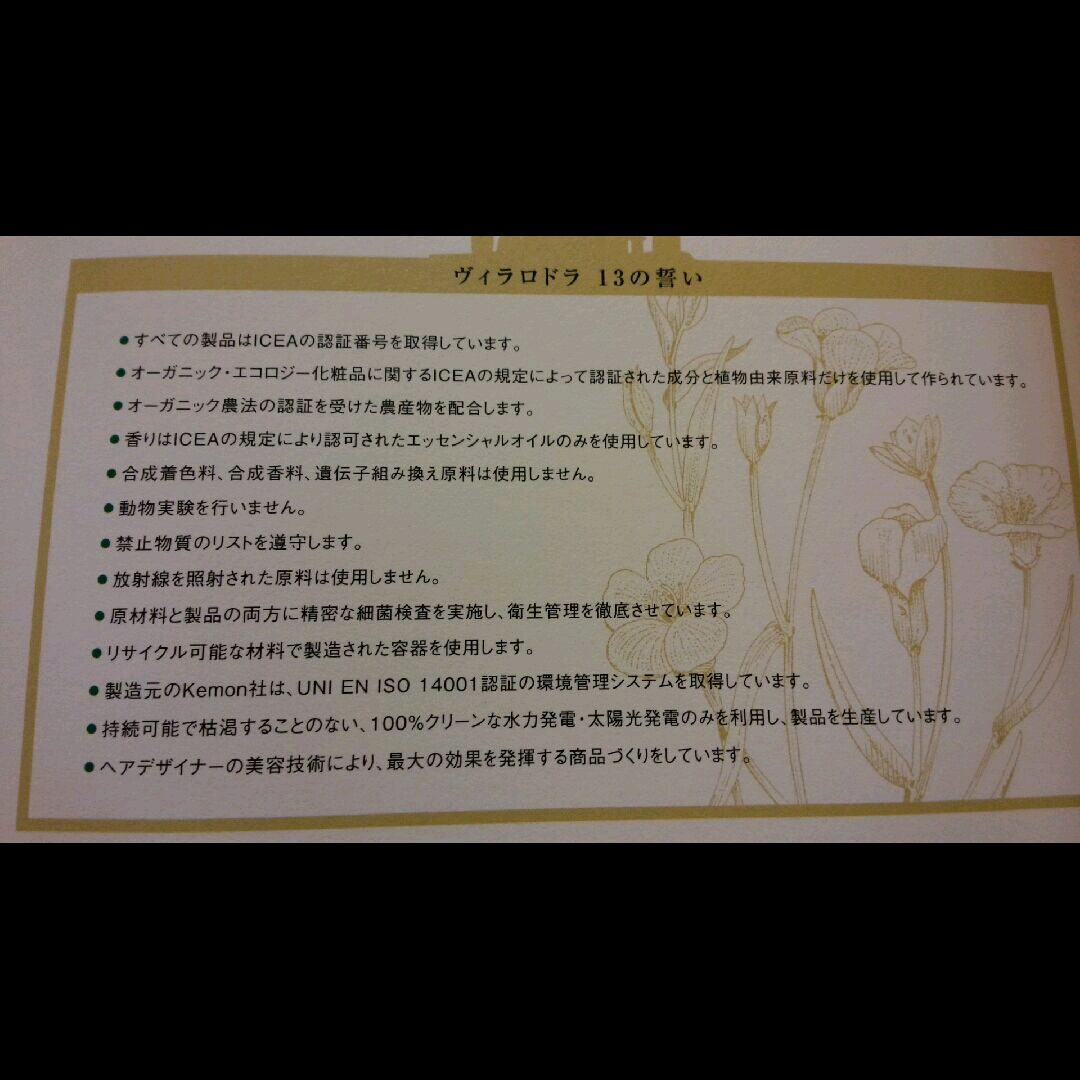 ヴィラロドラ 13の誓い
●すべての製品はICEAの認証番号を取得しています。
●オーガニック・エコロジー化粧品に関するICEAの規定によって認証された成分と植物由来原料だけを使用して作られています。
●オーガニック農法の認証を受けた農産物を配合します。
●香りはICEAの規定により認可されたエッセンシャルオイルのみを使用しています。
●合成着色料、合成香料、遺伝子組み換え原料は使用しません。
●動物実験を行いません。
●禁止物質のリストを遵守します。
●放射線を照射された原料は使用しません。
●原材料と製品の両方に精密な細菌検査を実施し、衛生管理を徹底させています。
●リサイクル可能な材料で製造された容器を使用します。
●製造元のKemon社は、UNI EN ISO 14001認証の環境管理システムを取得しています。
●持続可能で枯渇することのない、100%クリーンな水力発電・太陽光発電のみを利用し、製品を生産しています。
●ヘアデザイナーの美容技術により、最大の効果を発揮する商品づくりをしています。